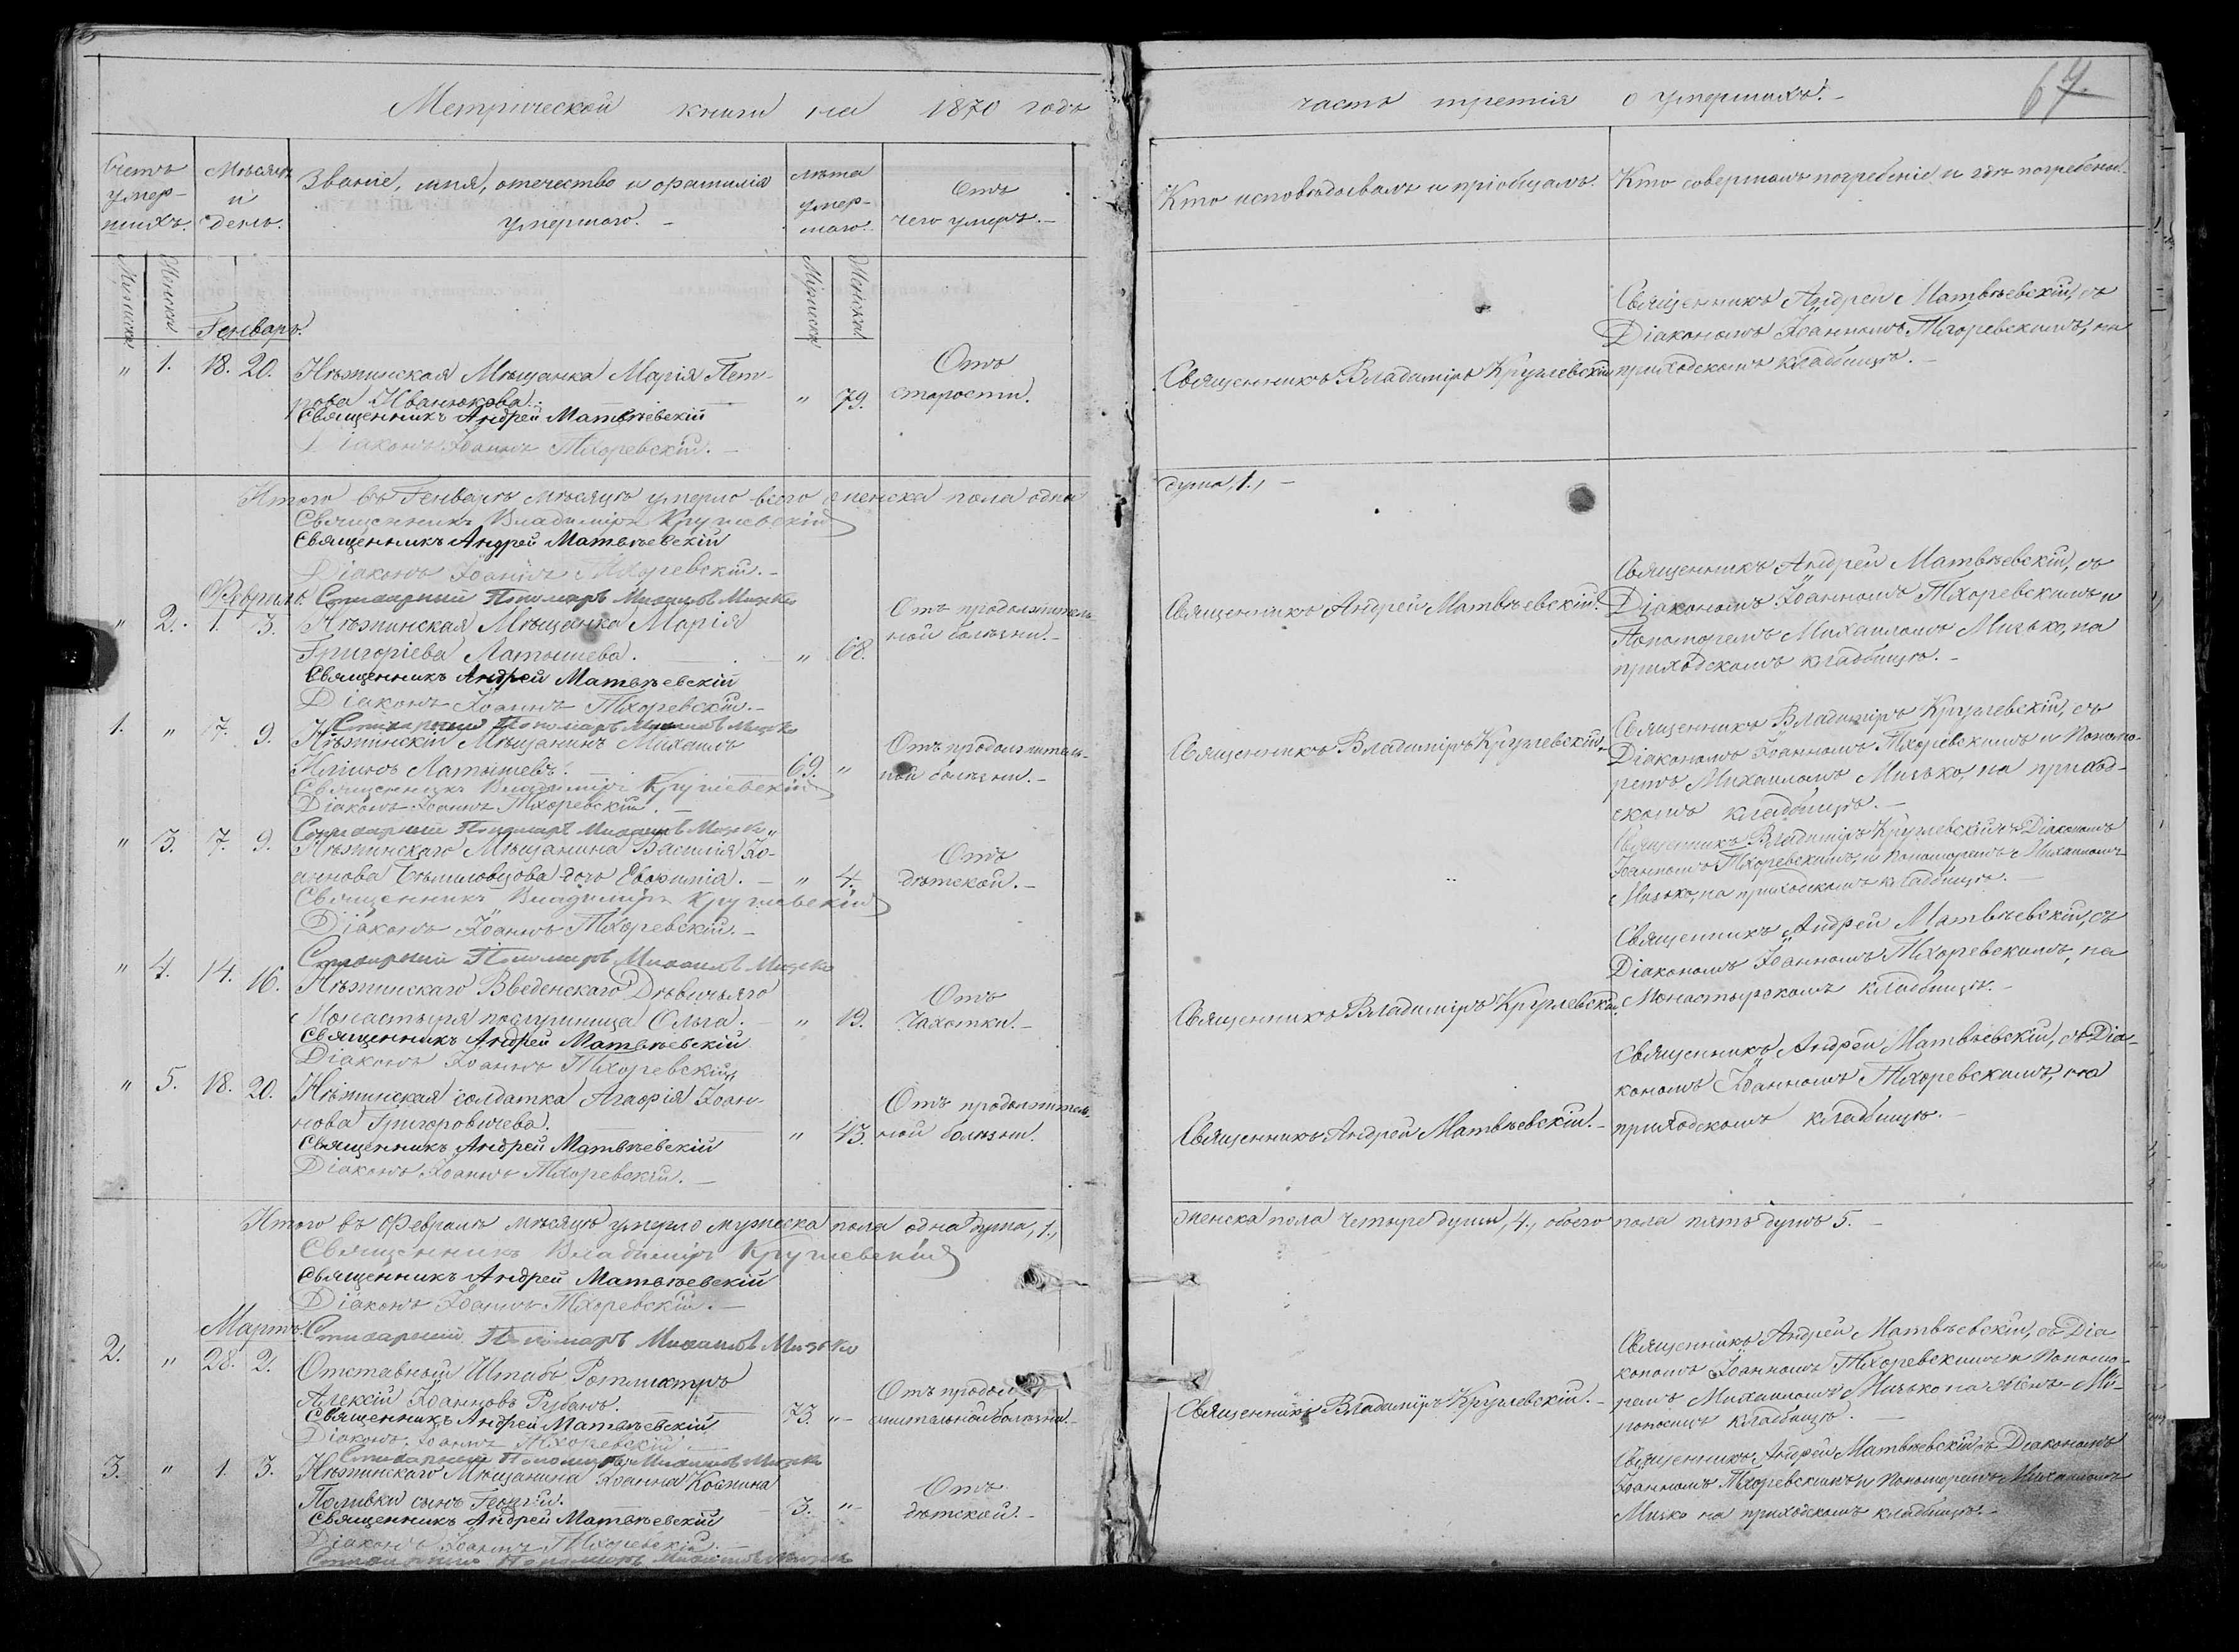 Метрической книги на 1870 годъ
Счетъ умер- шихъ.
Мѣсяцъ и день.
Званіе, имя, отечество и фамилія умершаго. -
Лѣта умер- шаго.
Отъ чего умеръ. -
Мужеска
Женска
Мужеска
Женска
Генварь.
" 1. 18. 20. Нѣжинская Мѣщанка Марія Пет- Отъ
рова Иванюкова. " 79. старости.
Священникъ Андрей Матвѣевскій
Діаконъ Іоаннъ Тхоревскій. -
Итого въ Генварѣ мѣсяцѣ умерло всего женска пола одна
Священникъ Владиміръ Кружевскій
Священникъ Андрей Матвѣевскій
Діаконъ Іоаннъ Тхоревскій. -
Февраль. Стихарный Пономарь Михаилъ Мизько
" 2. 1. 3. Нѣжинская Мѣщанка Марія Отъ продолжитель-
Григоріева Латышева. " 68. ной болѣзни. -
Священникъ Андрей Матвѣевскій
Діаконъ Іоаннъ Тхоревскій. -
Стихарный Пономарь Михаилъ Мизько
1. " 7. 9. Нѣжинскій Мѣщанинъ Михаилъ Отъ продолжитель-
Латышевъ. 69. " ной болѣзни. -
Священникъ Владиміръ Кружевскій
Діаконъ Іоаннъ Тхоревскій. -
Стихарный Пономарь Михаилъ Мизько
" 3. 7. 9. Нѣжинскаго Мѣщанина Василія Іо- Отъ
аннова дочь Евфимія. - " 4. дѣтской. -
Священникъ Владиміръ Кружевскій
Діаконъ Іоаннъ Тхоревскій. -
Стихарный Пономарь Михаилъ Мизько
" 4. 14. 16. Нѣжинскаго Введенскаго Дѣвичьяго Отъ
Монастыря послушница Ольга. " 19. Чахотки. -
Священникъ Андрей Матвѣевскій
Діаконъ Іоаннъ Тхоревскій
" 5. 18. 20. Нѣжинская солдатка Агафія Іоан- Отъ продолжитель-
нова Григоровичева. " 43. ной болѣзни.
Священникъ Андрей Матвѣевскій
Діаконъ Іоаннъ Тхоревскій. -
Итого въ Февралѣ мѣсяцѣ умерло мужеска пола одна душа, 1.,
Священникъ Владиміръ Кружевскій
Священникъ Андрей Матвѣевскій
Діаконъ Іоаннъ Тхоревскій. -
Мартъ. Стихарный Пономарь Михаилъ Мизько
2. " 28. 2. Отставный Штабъ Ротмистръ Отъ продол-
Алексій Іоанновъ Рубанъ. 73. " - жительной болѣзни. -
Священникъ Андрей Матвѣевскій
Діаконъ Іоаннъ Тхоревскій.
Стихарный Пономарь Михаилъ Мизько
3. " 1. 3. Нѣжинскаго Мѣщанина Іоанна Отъ
Поливки сынъ Георгій. 3. " - дѣтской. -
Священникъ Андрей Матвѣевскій
Діаконъ Іоаннъ Тхоревскій. -
Стихарный Пономарь Михаилъ Мизько
часть третія о умершихъ. -
67.
Кто исповѣдывалъ и пріобщалъ.
Кто совершалъ погребеніе и гдѣ погребены. -
Священникъ Андрей Матвѣевскій, съ
Діакономъ Іоанномъ Тхоревскимъ, на
Священникъ Владиміръ Кружевскій приходскомъ кладбищѣ. -
душа, 1., -
Священникъ Андрей Матвѣевскій, съ
Священникъ Андрей Матвѣевскій. Діакономъ Іоанномъ Тхоревскимъ и
Пономаремъ Михаиломъ Мизько, на
приходскомъ кладбищѣ. -
Священникъ Владиміръ Кружевскій, съ
Священникъ Владиміръ Кружевскій. Діакономъ Іоанномъ Тхоревскимъ и Понома-
ремъ Михаиломъ Мизько, на приход-
скомъ кладбищѣ. -
Священникъ Владиміръ Кружевскій съ Діакономъ
Іоанномъ Тхоревскимъ, и Пономаремъ Михаиломъ
Мизько, на приходскомъ кладбищѣ. -
Священникъ Андрей Матвѣевскій, съ
Діакономъ Іоанномъ Тхоревскимъ, на
Священникъ Владиміръ Кружевскій. Монастырскомъ кладбищѣ. -
Священникъ Андрей Матвѣевскій, съ Діа-
кономъ Іоанномъ Тхоревскимъ, на
Священникъ Андрей Матвѣевскій. - приходскомъ кладбищѣ. -
женска пола четыре души, 4., обоего пола пять душъ 5. -
Священникъ Андрей Матвѣевскій, съ Діа-
кономъ Іоанномъ Тхоревскимъ и Понома-
Священникъ Владиміръ Кружевскій. - ремъ Михаиломъ Мизько на
кладбищѣ. -
Священникъ Андрей Матвѣевскій съ Діакономъ
Іоанномъ Тхоревскимъ и Пономаремъ Михаиломъ
Мизько на приходскомъ кладбищѣ. -